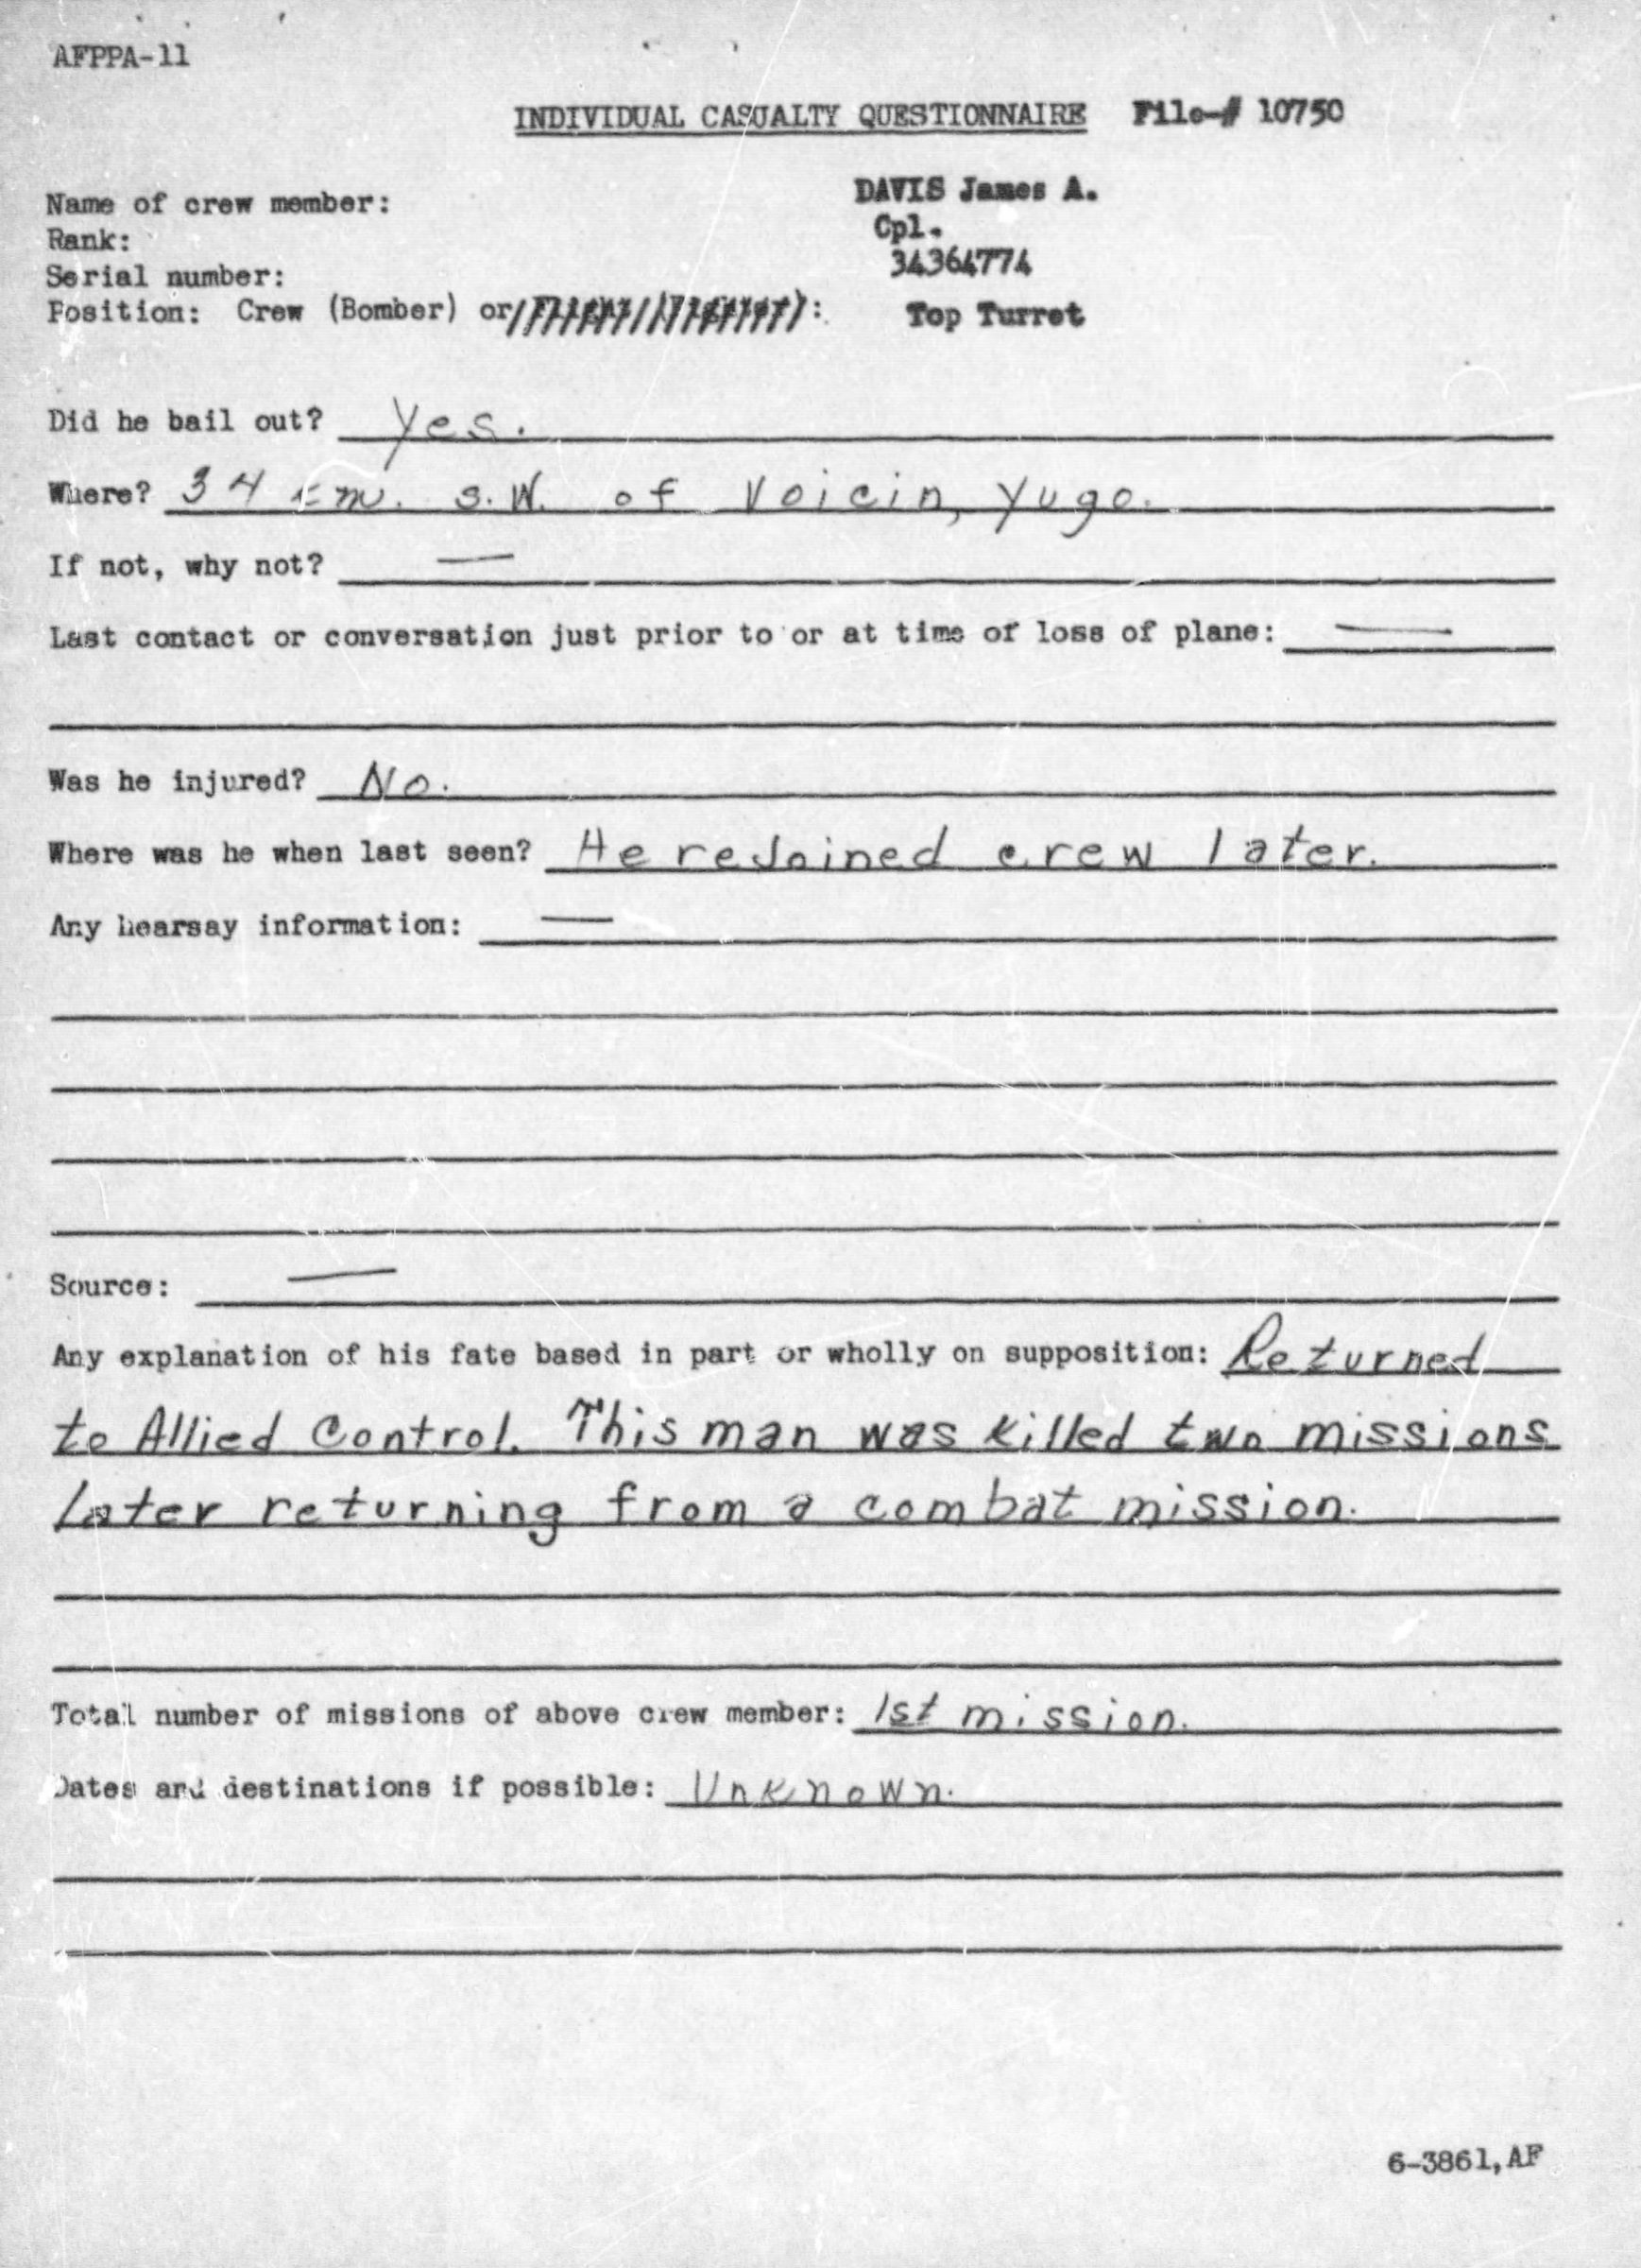 AFPPA-11
INDIVIDUAL CASUALTY QUESTIONNAIRE File-# 10750
Name of crew member: DAVIS James A.
Rank: Cpl.
Serial number: 34364774
Position: Crew (Bomber) or : Top Turret
Did he bail out? Yes.
Where? 34 S.W. of Voicin, Yugo.
If not, why not? —
Last contact or conversation just prior to or at time of loss of plane: —
Was he injured? No.
Where was he when last seen? He rejoined crew later.
Any hearsay information: —
Source: —
Any explanation of his fate based in part or wholly on supposition: Returned
to Allied Control. This man was killed two missions
later returning from a combat mission.
Total number of missions of above crew member: 1st mission.
Dates and destinations if possible: Unknown.
6-3861,AF